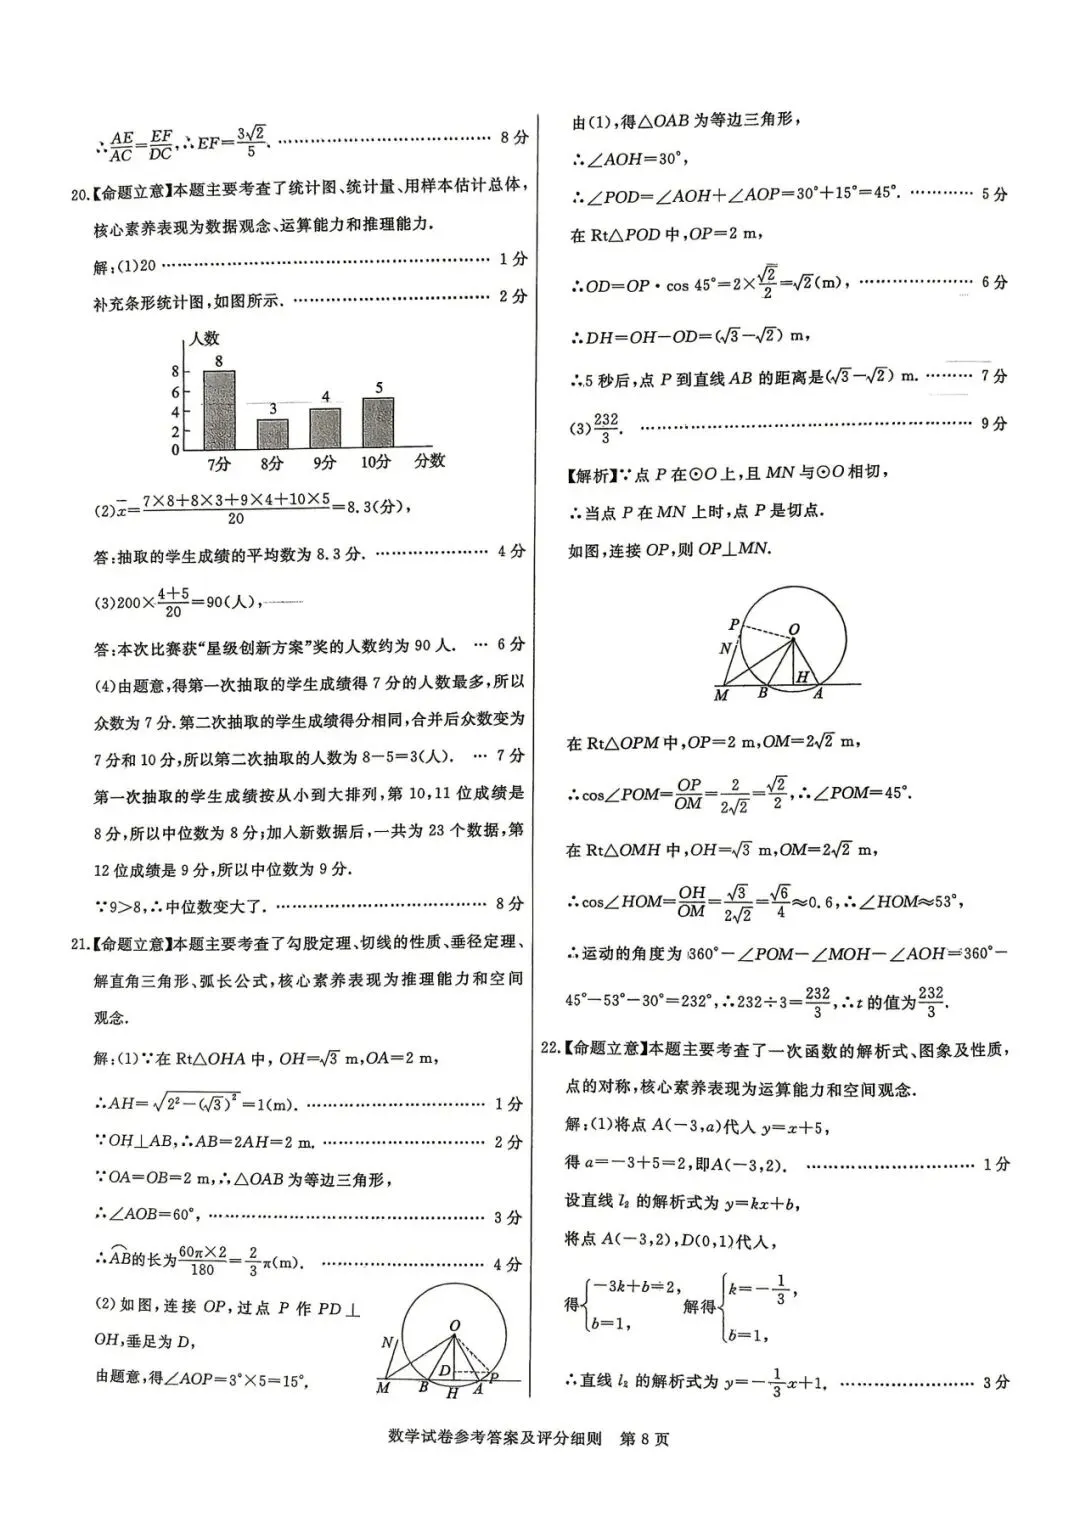 ∴AE/AC=EF/DC,∴EF=3√2/5. ………… 8分
20.【命题立意】本题主要考查了统计图、统计量、用样本估计总体,
核心素养表现为数据观念、运算能力和推理能力.
解:(1)20 ………… 1分
补充条形统计图,如图所示. ………… 2分
人数
8
6
4
2
0
8
3
4
5
7分 8分 9分 10分 分数
(2)x̄=(7×8+8×3+9×4+10×5)/20=8.3(分),
答:抽取的学生成绩的平均数为8.3分. ………… 4分
(3)200×(4+5)/20=90(人),
答:本次比赛获“星级创新方案”奖的人数约为90人. … 6分
(4)由题意,得第一次抽取的学生成绩得7分的人数最多,所以
众数为7分.第二次抽取的学生成绩得分相同,合并后众数变为
7分和10分,所以第二次抽取的人数为8-5=3(人). … 7分
第一次抽取的学生成绩按从小到大排列,第10,11位成绩是
8分,所以中位数为8分;加入新数据后,一共为23个数据,第
12位成绩是9分,所以中位数为9分.
∵9>8,∴中位数变大了. ………… 8分
21.【命题立意】本题主要考查了勾股定理、切线的性质、垂径定理、
解直角三角形、弧长公式,核心素养表现为推理能力和空间
观念.
解:(1)∵在Rt△OHA中,OH=√3 m,OA=2 m,
∴AH=√(2²-(√3)²)=1(m). ………… 1分
∵OH⊥AB,∴AB=2AH=2 m. ………… 2分
∵OA=OB=2 m,∴△OAB为等边三角形,
∴∠AOB=60°, ………… 3分
∴⌒AB的长为60π×2/180=2/3π(m). ………… 4分
(2)如图,连接OP,过点P作PD⊥
OH,垂足为D,
由题意,得∠AOP=3°×5=15°,
O
N
D
P
M B H A
由(1),得△OAB为等边三角形,
∴∠AOH=30°,
∴∠POD=∠AOH+∠AOP=30°+15°=45°. ………… 5分
在Rt△POD中,OP=2 m,
∴OD=OP·cos 45°=2×√2/2=√2(m), ………… 6分
∴DH=OH-OD=(√3-√2) m,
∴5秒后,点P到直线AB的距离是(√3-√2) m. ……… 7分
(3)232/3. ………… 9分
【解析】∵点P在⊙O上,且MN与⊙O相切,
∴当点P在MN上时,点P是切点.
如图,连接OP,则OP⊥MN.
P
O
N
H
M B A
在Rt△OPM中,OP=2 m,OM=2√2 m,
∴cos∠POM=OP/OM=2/2√2=√2/2,∴∠POM=45°.
在Rt△OMH中,OH=√3 m,OM=2√2 m,
∴cos∠HOM=OH/OM=√3/2√2=√6/4≈0.6,∴∠HOM≈53°,
∴运动的角度为360°-∠POM-∠MOH-∠AOH=360°-
45°-53°-30°=232°,∴232÷3=232/3,∴t的值为232/3.
22.【命题立意】本题主要考查了一次函数的解析式、图象及性质,
点的对称,核心素养表现为运算能力和空间观念.
解:(1)将点A(-3,a)代入y=x+5,
得a=-3+5=2,即A(-3,2). ………… 1分
设直线l₂的解析式为y=kx+b,
将点A(-3,2),D(0,1)代入,
得{-3k+b=2, b=1, 解得{k=-1/3, b=1,
∴直线l₂的解析式为y=-1/3x+1. ………… 3分
数学试卷参考答案及评分细则 第8页